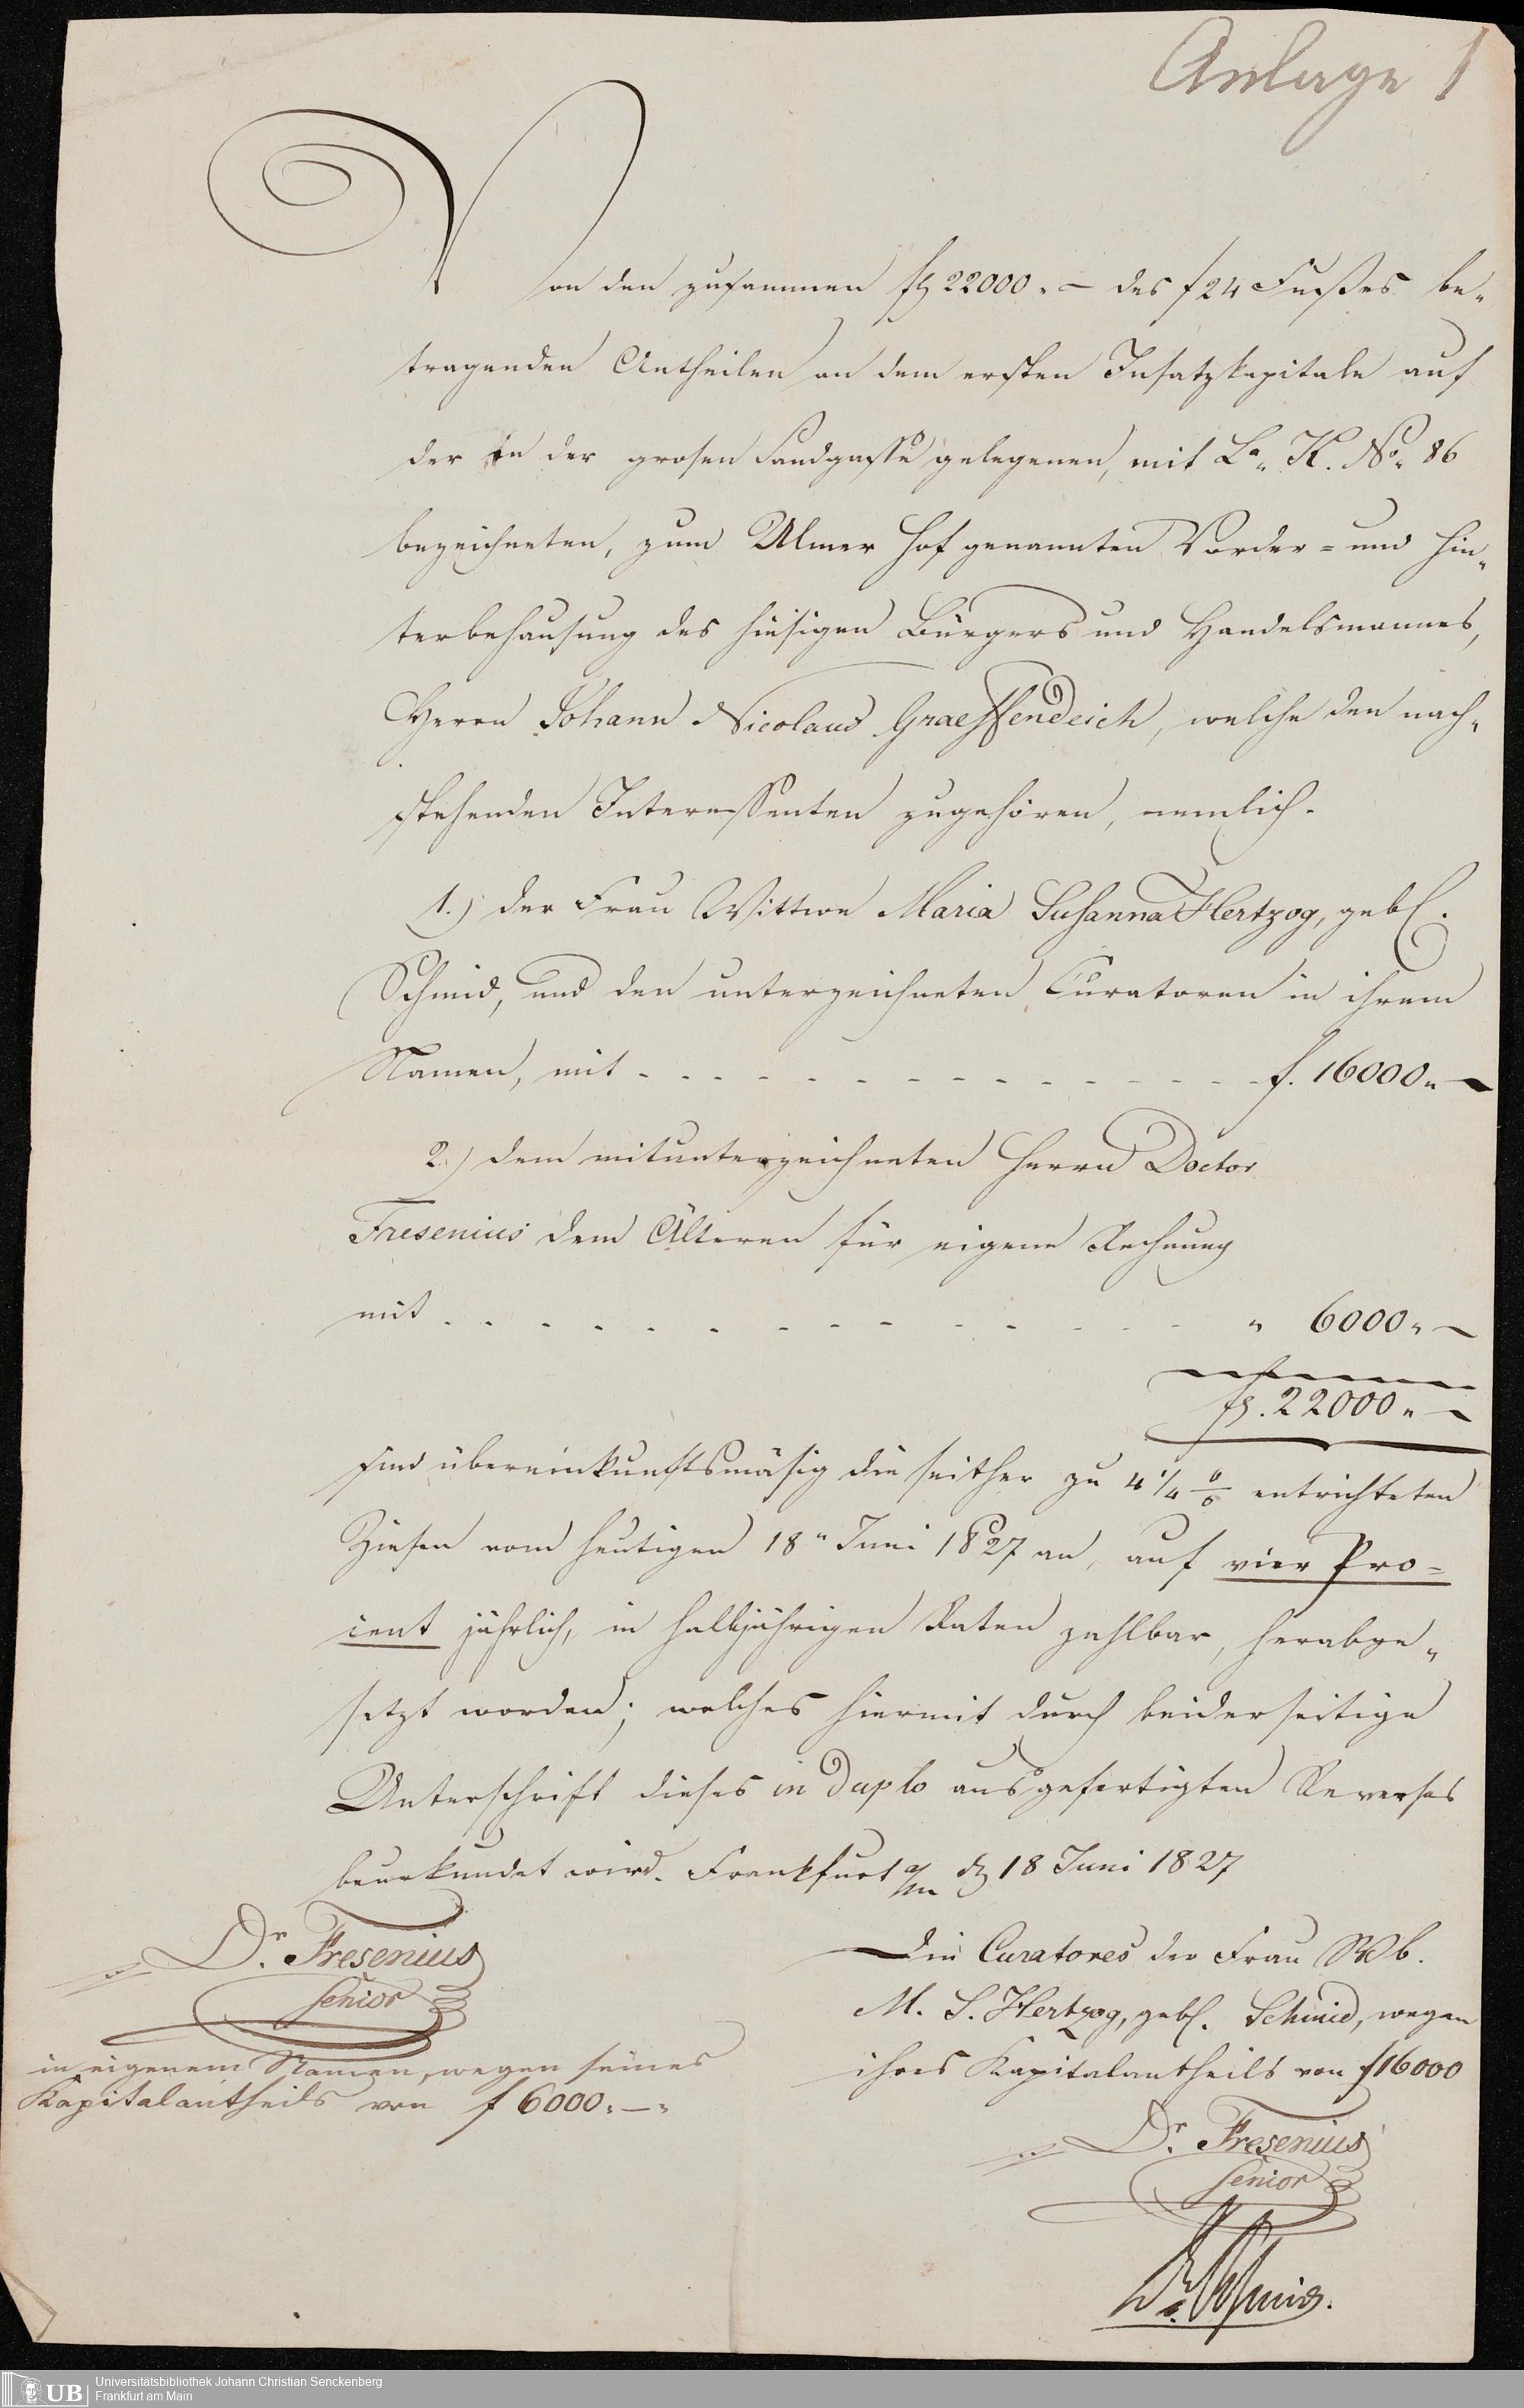 Anlage 1
Von den zusammen fl 22000.- des f 24 Fußes be-
tragenden Antheilen an dem ersten Insatzkapitale auf
der in der grosen Sandgasse gelegenen, mit La. K. No. 86
bezeichneten, zum Ulmer Hof genannten Vorder- und Hin-
terbehausung des hiesigen Bürgers und Handelsmannes,
Herrn Johann Nicolaus Graeffendeich, welche den nach-
stehenden Interessenten zugehören, nemlich.
1.) der Frau Wittwe Maria Susanna Hertzog, geb.
Schmid, und den unterzeichneten Curatoren in ihrem
Namen, mit - - - - - - - - - - - - f. 16000.-
2.) dem mitunterzeichneten Herrn Doctor
Fresenius dem Älteren für eigene Rechnung
mit - - - - - - - - - - - - - " 6000.-
fl. 22000.-
sind übereinkunftsmäsig die seither zu 4 1/4 % entrichteten
Zinsen vom heutigen 18" Juni 1827 an, auf vier Pro-
cent jährlich, in halbjährigen Raten zahlbar, herabge-
setzt worden; welches hiermit durch beiderseitige
Unterschrift dieses in duplo ausgefertigten Reverses
beurkundet wird. Frankfurt a/m d 18 Juni 1827
Dr. Fresenius
senior
in eigenem Namen, wegen seines
Kapitalantheils von f 6000.-.
Die Curatores der Frau Wb.
M. S. Hertzog, geb. Schmid, wegen
ihres Kapitalantheils von f 16000
Dr. Fresenius
senior
Dr. Schmid.
UB Universitätsbibliothek Johann Christian Senckenberg
Frankfurt am Main